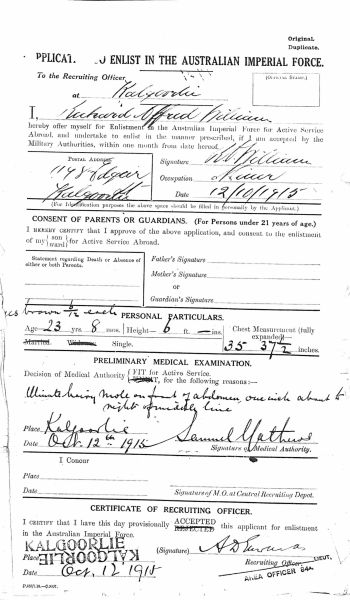 Original.
Duplicate.
PPLICAT O ENLIST IN THE AUSTRALIAN IMPERIAL FORCE.
To the Recruiting Officer,
at Kalgoorlie
I, Richard Alfred William
hereby offer myself for Enlistment in the Australian Imperial Force for Active Service
Abroad, and undertake to enlist in the manner prescribed, if I am accepted by the
Military Authorities, within one month from date hereof.
Postal Address
Signature
Kalgoorlie
Occupation
Date 12/10/1915
(For identification purposes the above space should be filled in personally by the Applicant.)
CONSENT OF PARENTS OR GUARDIANS. (For Persons under 21 years of age.)
I HEREBY CERTIFY that I approve of the above application, and consent to the enlistment
of my {son ward} for Active Service Abroad.
Statement regarding Death or Absence of
either or both Parents.
Father's Signature
Mother's Signature
or
Guardian's Signature
brown
PERSONAL PARTICULARS.
Age—23 yrs 8 mos. Height— 6 ft. — ins.
Chest Measurement (fully
expanded)—
Married. Widower. Single.
35 37½ inches.
PRELIMINARY MEDICAL EXAMINATION.
Decision of Medical Authority {FIT UNFIT, for Active Service.
for the following reasons:—
mole on front of abdomen, one inch about to
right of middle line
Place Kalgoorlie
Date Oct. 12th 1915
Samuel Mathews
Signature of Medical Authority.
I Concur
Place
Date
Signature of M.O. at Central Recruiting Depot.
CERTIFICATE OF RECRUITING OFFICER.
I CERTIFY that I have this day provisionally ACCEPTED REJECTED this applicant for enlistment
in the Australian Imperial Force.
KALGOORLIE
KALGOORLIE
Place
(Signature)
Recruiting Officer
LIEUT.
AREA OFFICER 84A
Date Oct. 12 1915